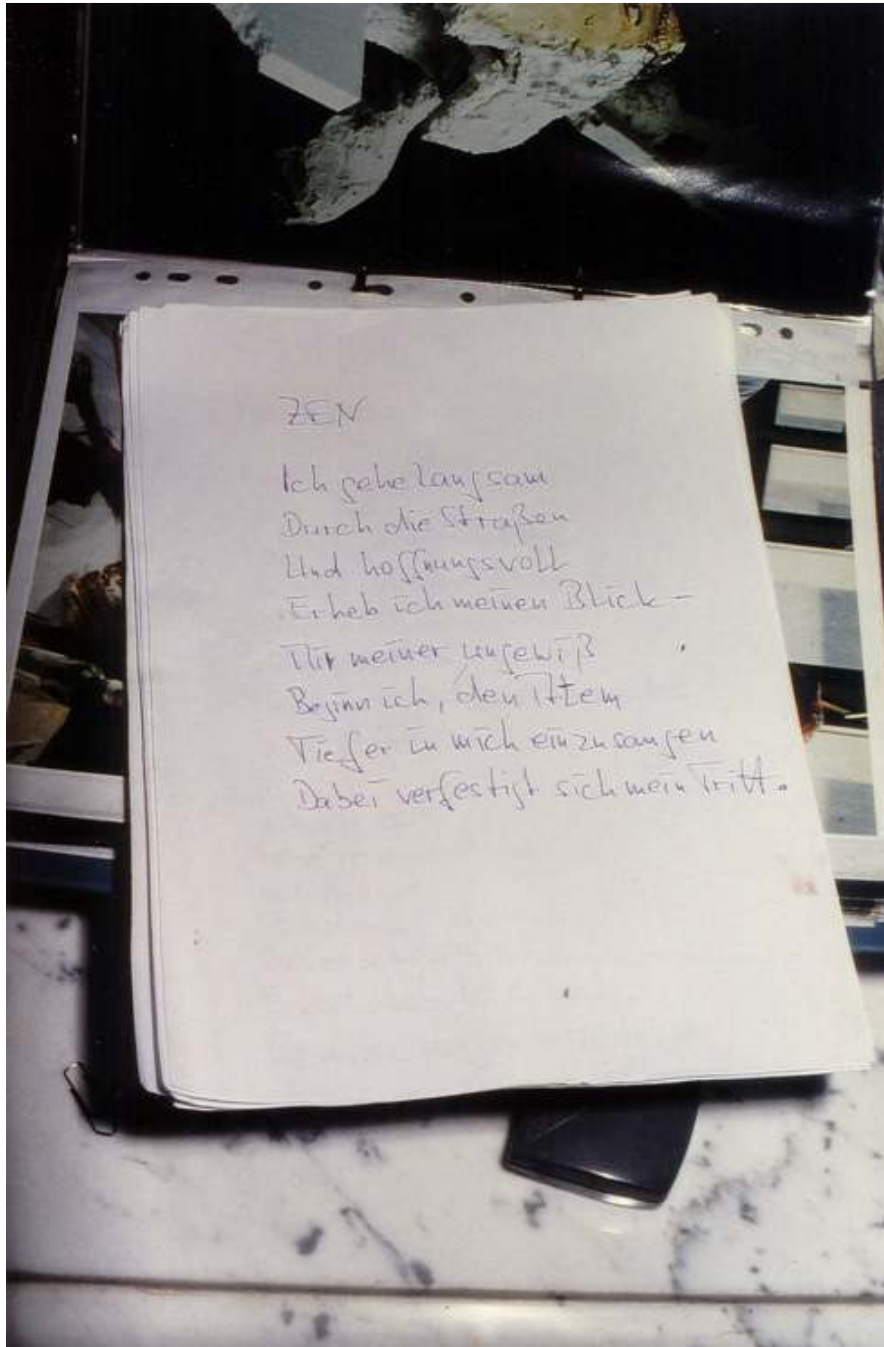 ZEN
Ich gehe langsam
Durch die Straßen
Und hoffnungsvoll
Erheb ich meinen Blick –
Mir meiner ungewiß
Beginn ich, den Atem
Tiefer in mich einzusaugen
Dabei verfestigt sich mein Tritt.